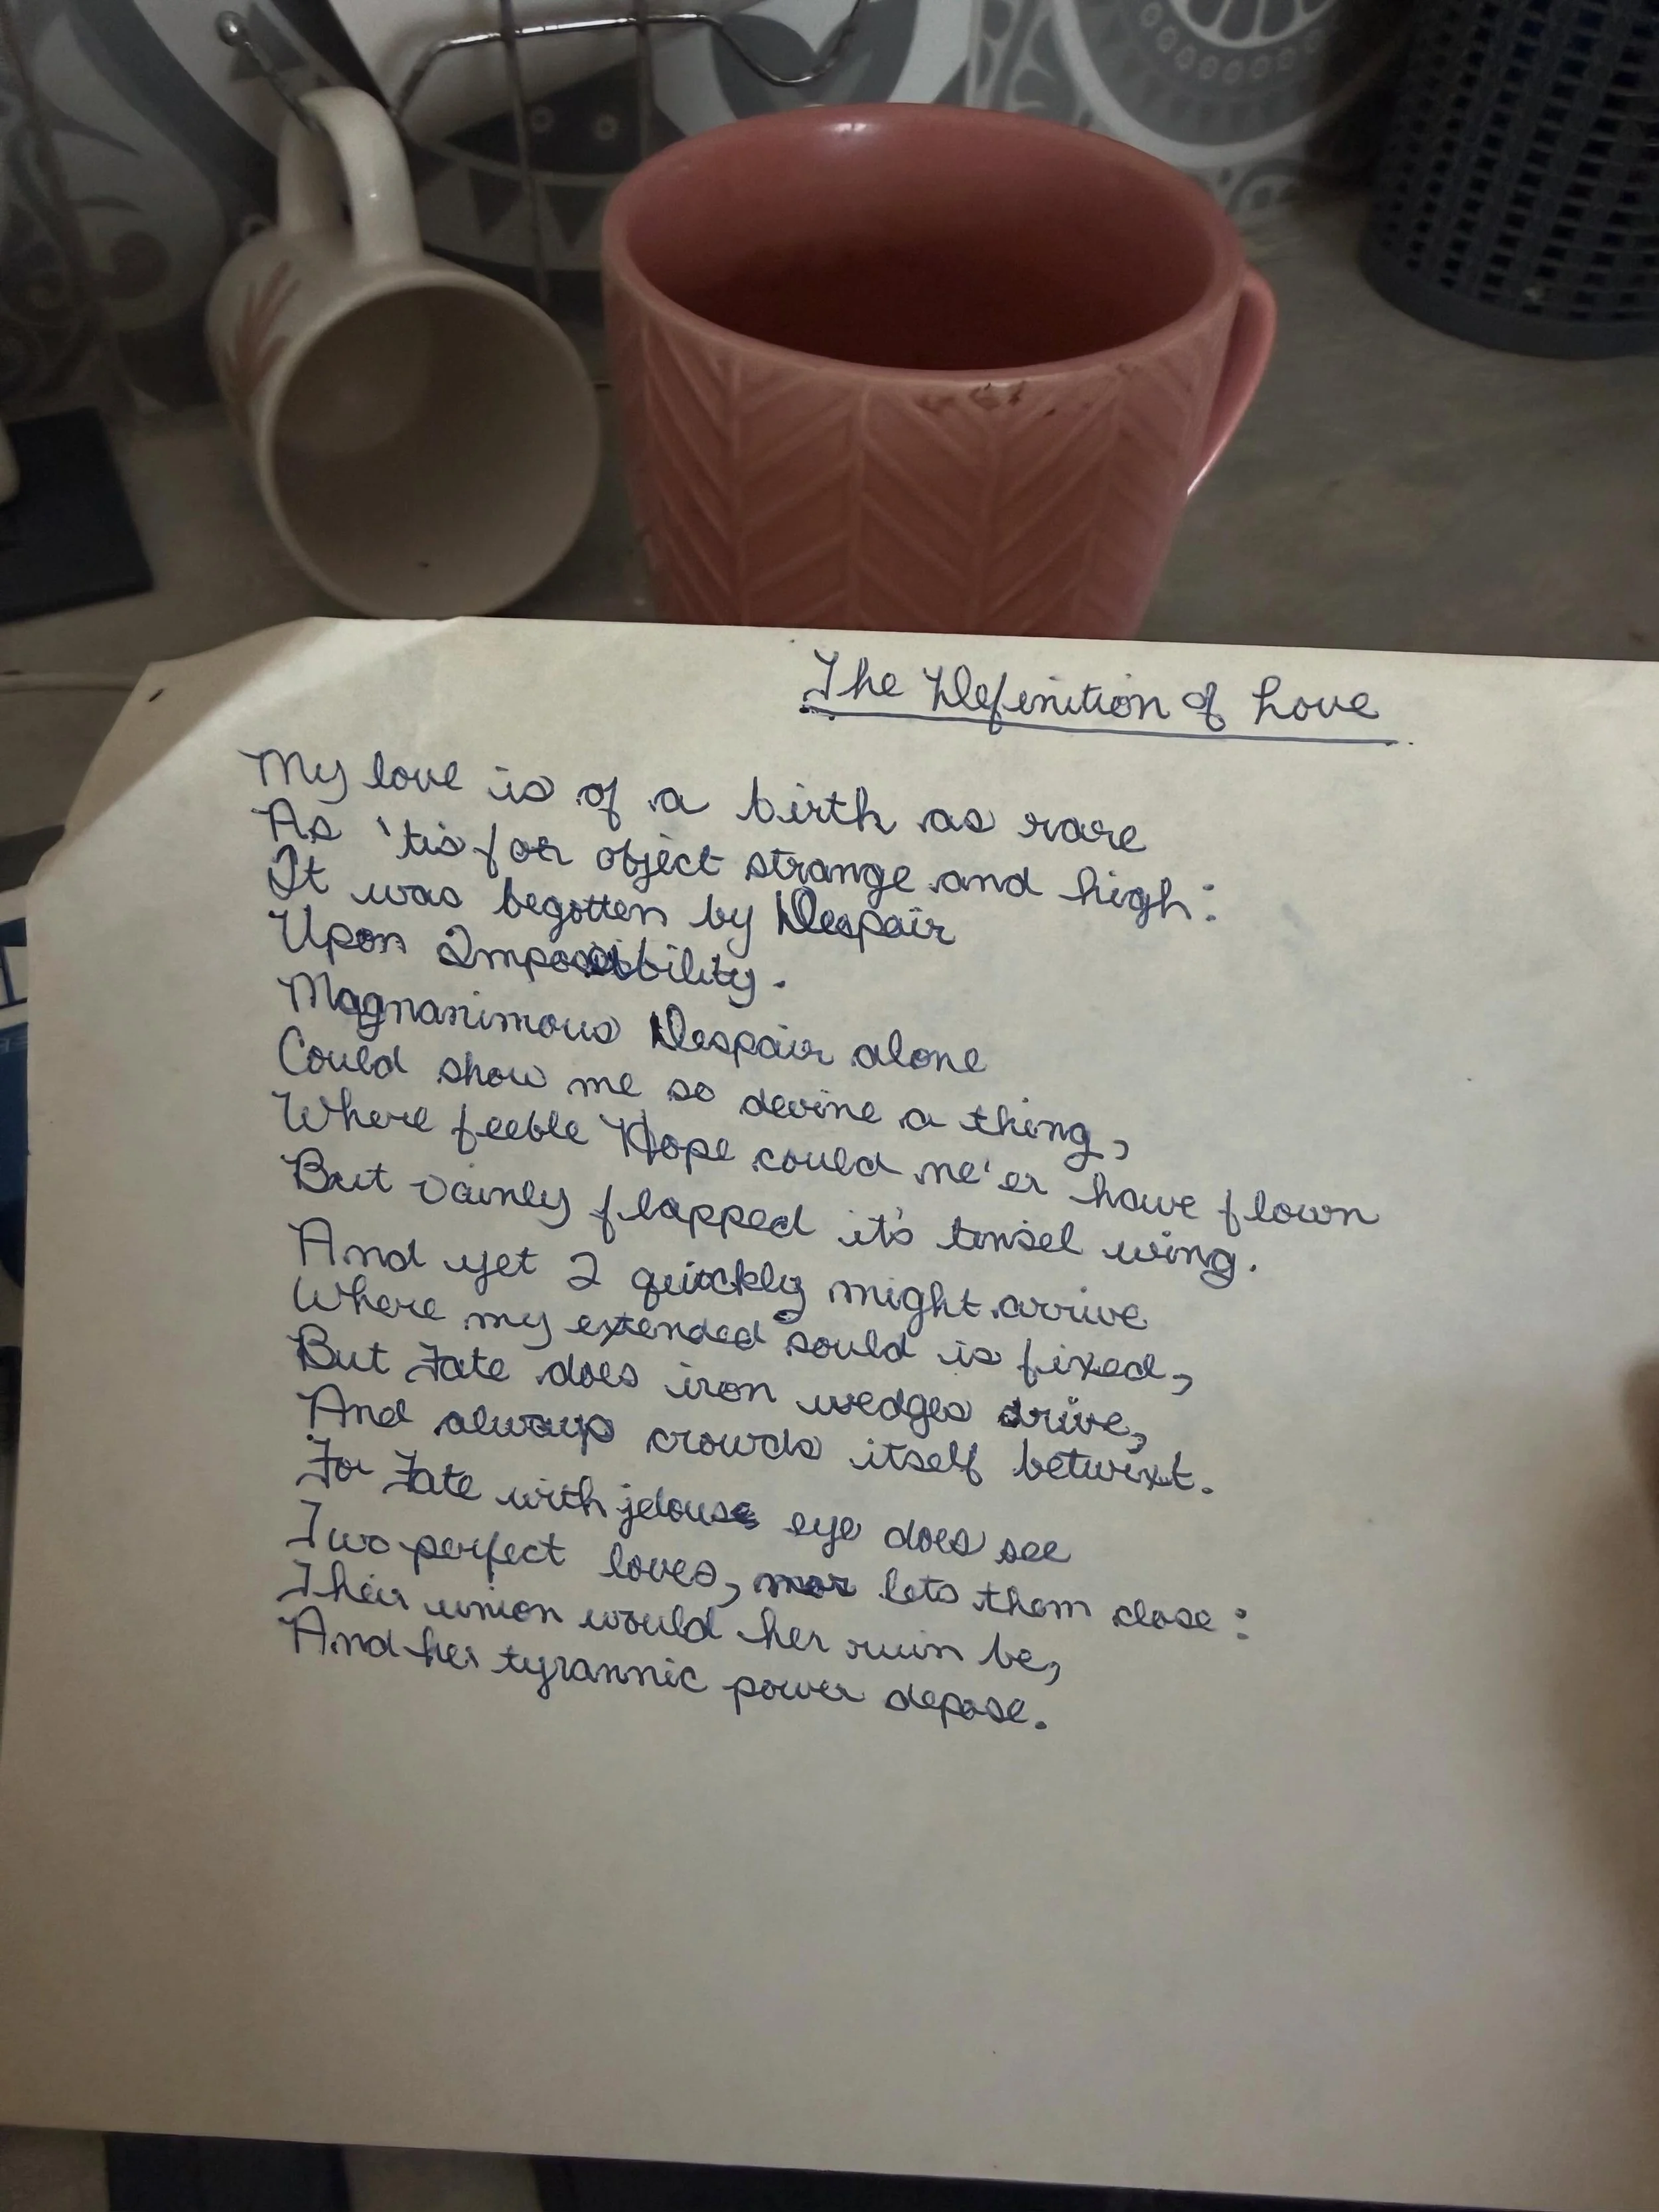 The Definition of Love
My love is of a birth as rare
As 'tis for object strange and high:
It was begotten by Despair
Upon Impossibility.
Magnanimous Despair alone
Could show me so devine a thing,
Where feeble Hope could ne'er have flown
But vainly flapped it's tinsel wing.
And yet I quickly might arrive
Where my extended sould is fixed,
But Fate does iron wedges drive,
And always crowds itself betwixt.
For Fate with jelouse eye does see
Two perfect loves, nor lets them close:
Their union would her ruin be,
And her tyrannic power depose.